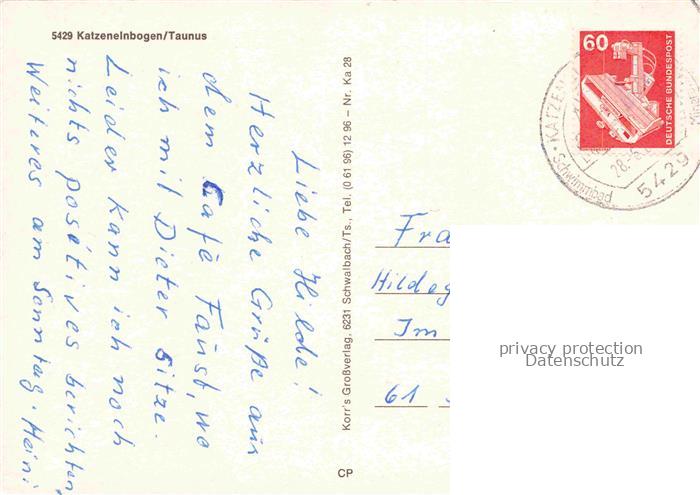 5429 Katzenelnbogen/Taunus
Liebe Hilde!
Herzliche Grüße aus
dem Cafè Faust, wo
ich mit Dieter sitze.
Leider kann ich noch
nichts positives berichten,
Weiteres am Sonntag. Heini
Korr's Großverlag, 6231 Schwalbach/Ts., Tel. (0 61 96) 12 96 – Nr. Ka 28
CP
60
DEUTSCHE BUNDESPOST
KATZEN
Schwimmbad
28.-6.
5429
Fra
Hildeg
Im
61
privacy protection
Datenschutz